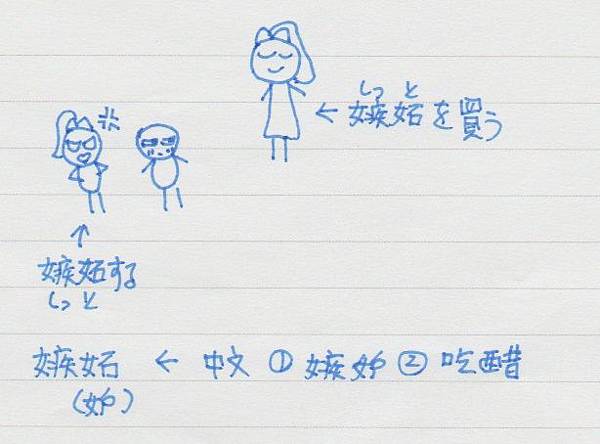 しっと
←嫉妬を買う
↑
嫉妬する
しっと
嫉妬 ← 中文 ① 嫉妒 ② 吃醋
(妒)